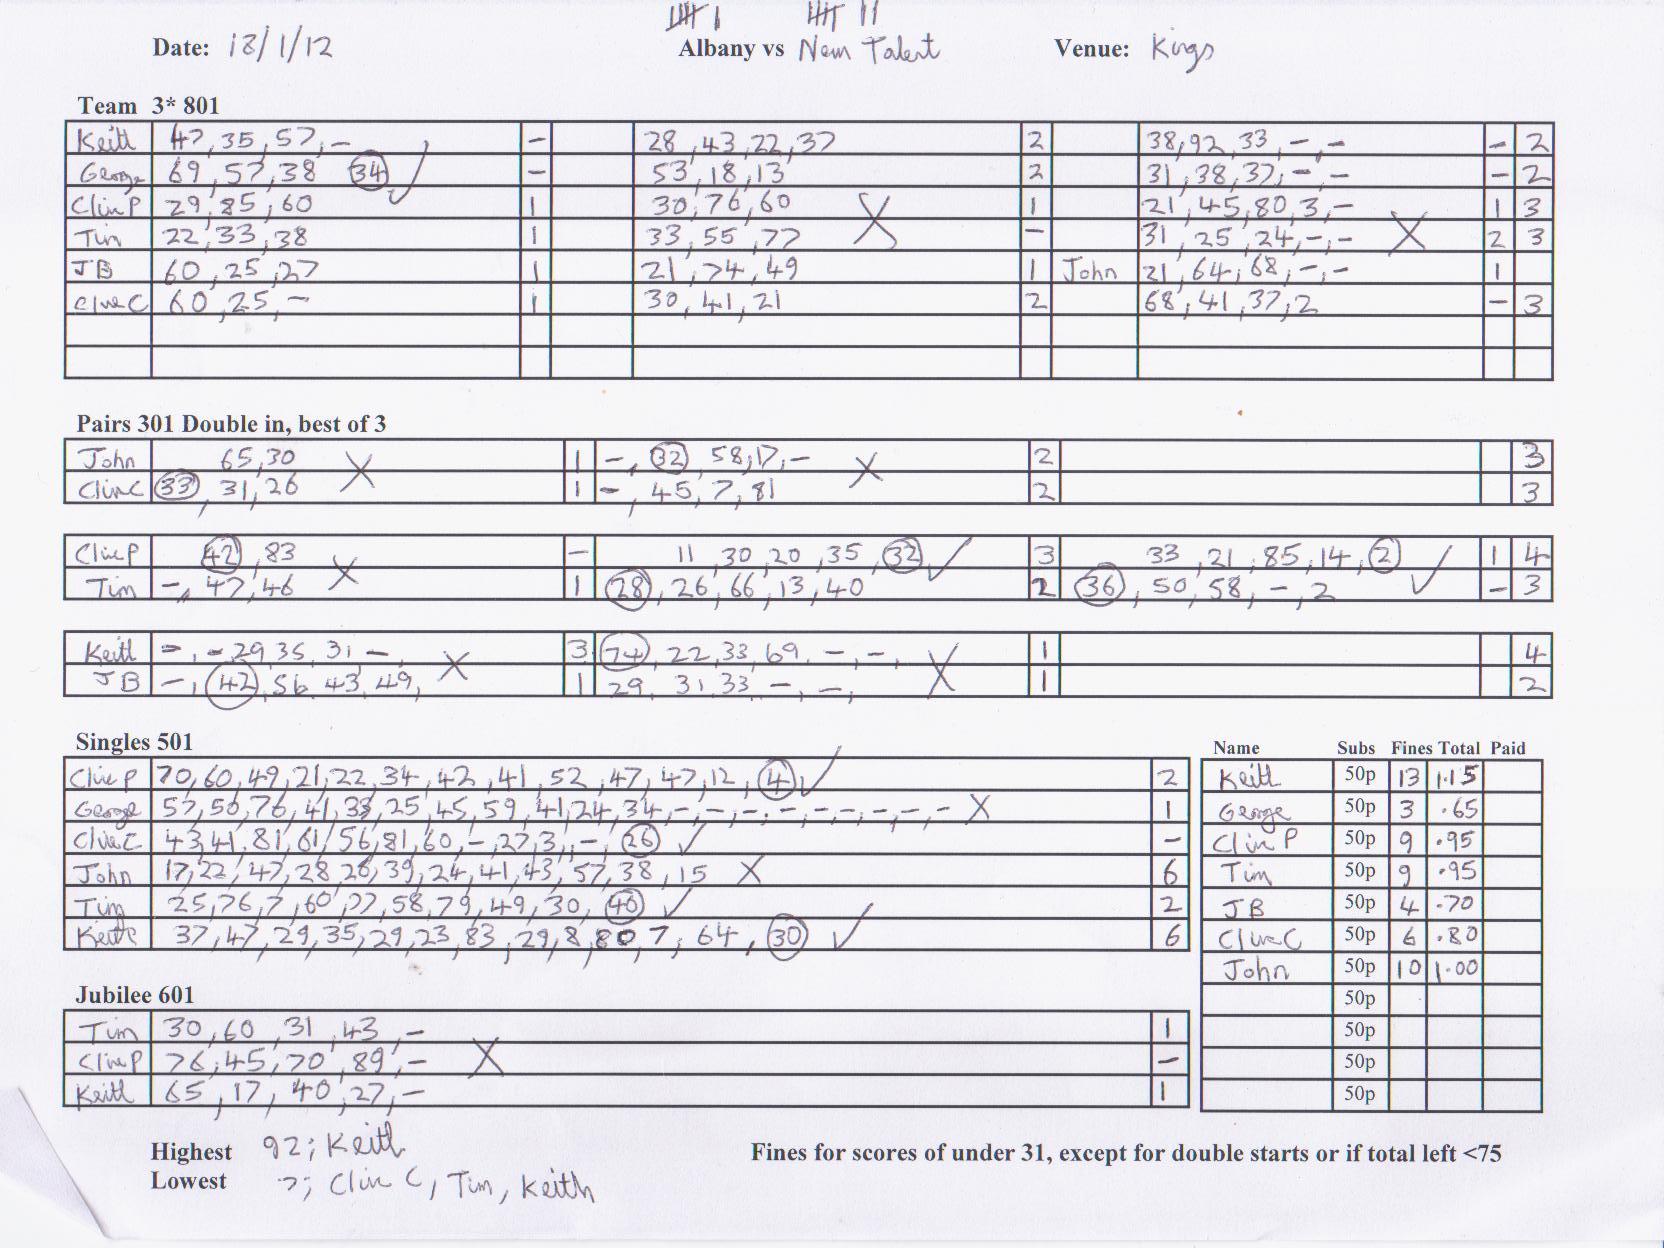 Date: 18/1/12 Albany vs New Talent Venue: Kings
Team 3* 801
Keith 47, 35, 57, - - 28, 43, 22, 37 2 38, 92, 33, -, - - 2
George 69, 57, 38 34 - 53, 18, 13 2 31, 38, 37, -, - - 2
Clive P 29, 85, 60 1 30, 76, 60 1 21, 45, 80, 3, - 1 3
Tim 22, 33, 38 1 33, 55, 77 - 31, 25, 24, -, - 2 3
JB 60, 25, 27 1 21, 74, 49 1 John 21, 64, 68, -, - 1
Clive C 60, 25, - 1 30, 41, 21 2 68, 41, 37, 2 - 3
Pairs 301 Double in, best of 3
John 65, 30 1 -, 32, 58, 17, - 2 3
Clive C 33, 31, 26 1 -, 45, 7, 81 2 3
Clive P 42, 83 - 11, 30, 20, 35, 32 3 33, 21, 85, 14, 2 1 4
Tim -, 47, 46 1 28, 26, 66, 13, 40 2 36, 50, 58, -, 2 - 3
Keith -, -, 29, 35, 31, - 3 74, 22, 33, 69, -, -, 1 4
JB -, 42, 56, 43, 49, 1 29, 31, 33, -, -, 1 2
Singles 501
Clive P 70, 60, 49, 21, 22, 34, 42, 41, 52, 47, 47, 12, 4 2
George 57, 50, 76, 41, 33, 25, 45, 59, 41, 24, 34, -, -, -, -, -, -, -, -, - 1
Clive C 43, 41, 81, 61, 56, 81, 60, -, 27, 3, -, 26 -
John 17, 22, 47, 28, 26, 39, 24, 41, 43, 57, 38, 15 6
Tim 25, 76, 7, 60, 77, 58, 79, 49, 30, 40 2
Keith 37, 47, 29, 35, 29, 23, 83, 29, 8, 80, 7, 64, 30 6
Name Subs Fines Total Paid
Keith 50p 13 1.15
George 50p 3 .65
Clive P 50p 9 .95
Tim 50p 9 .95
JB 50p 4 .70
Clive C 50p 6 .80
John 50p 10 1.00
50p
50p
50p
50p
Jubilee 601
Tim 30, 60, 31, 43, - 1
Clive P 76, 45, 70, 89, - -
Keith 65, 17, 40, 27, - 1
Highest 92; Keith
Fines for scores of under 31, except for double starts or if total left <75
Lowest 7; Clive C, Tim, Keith